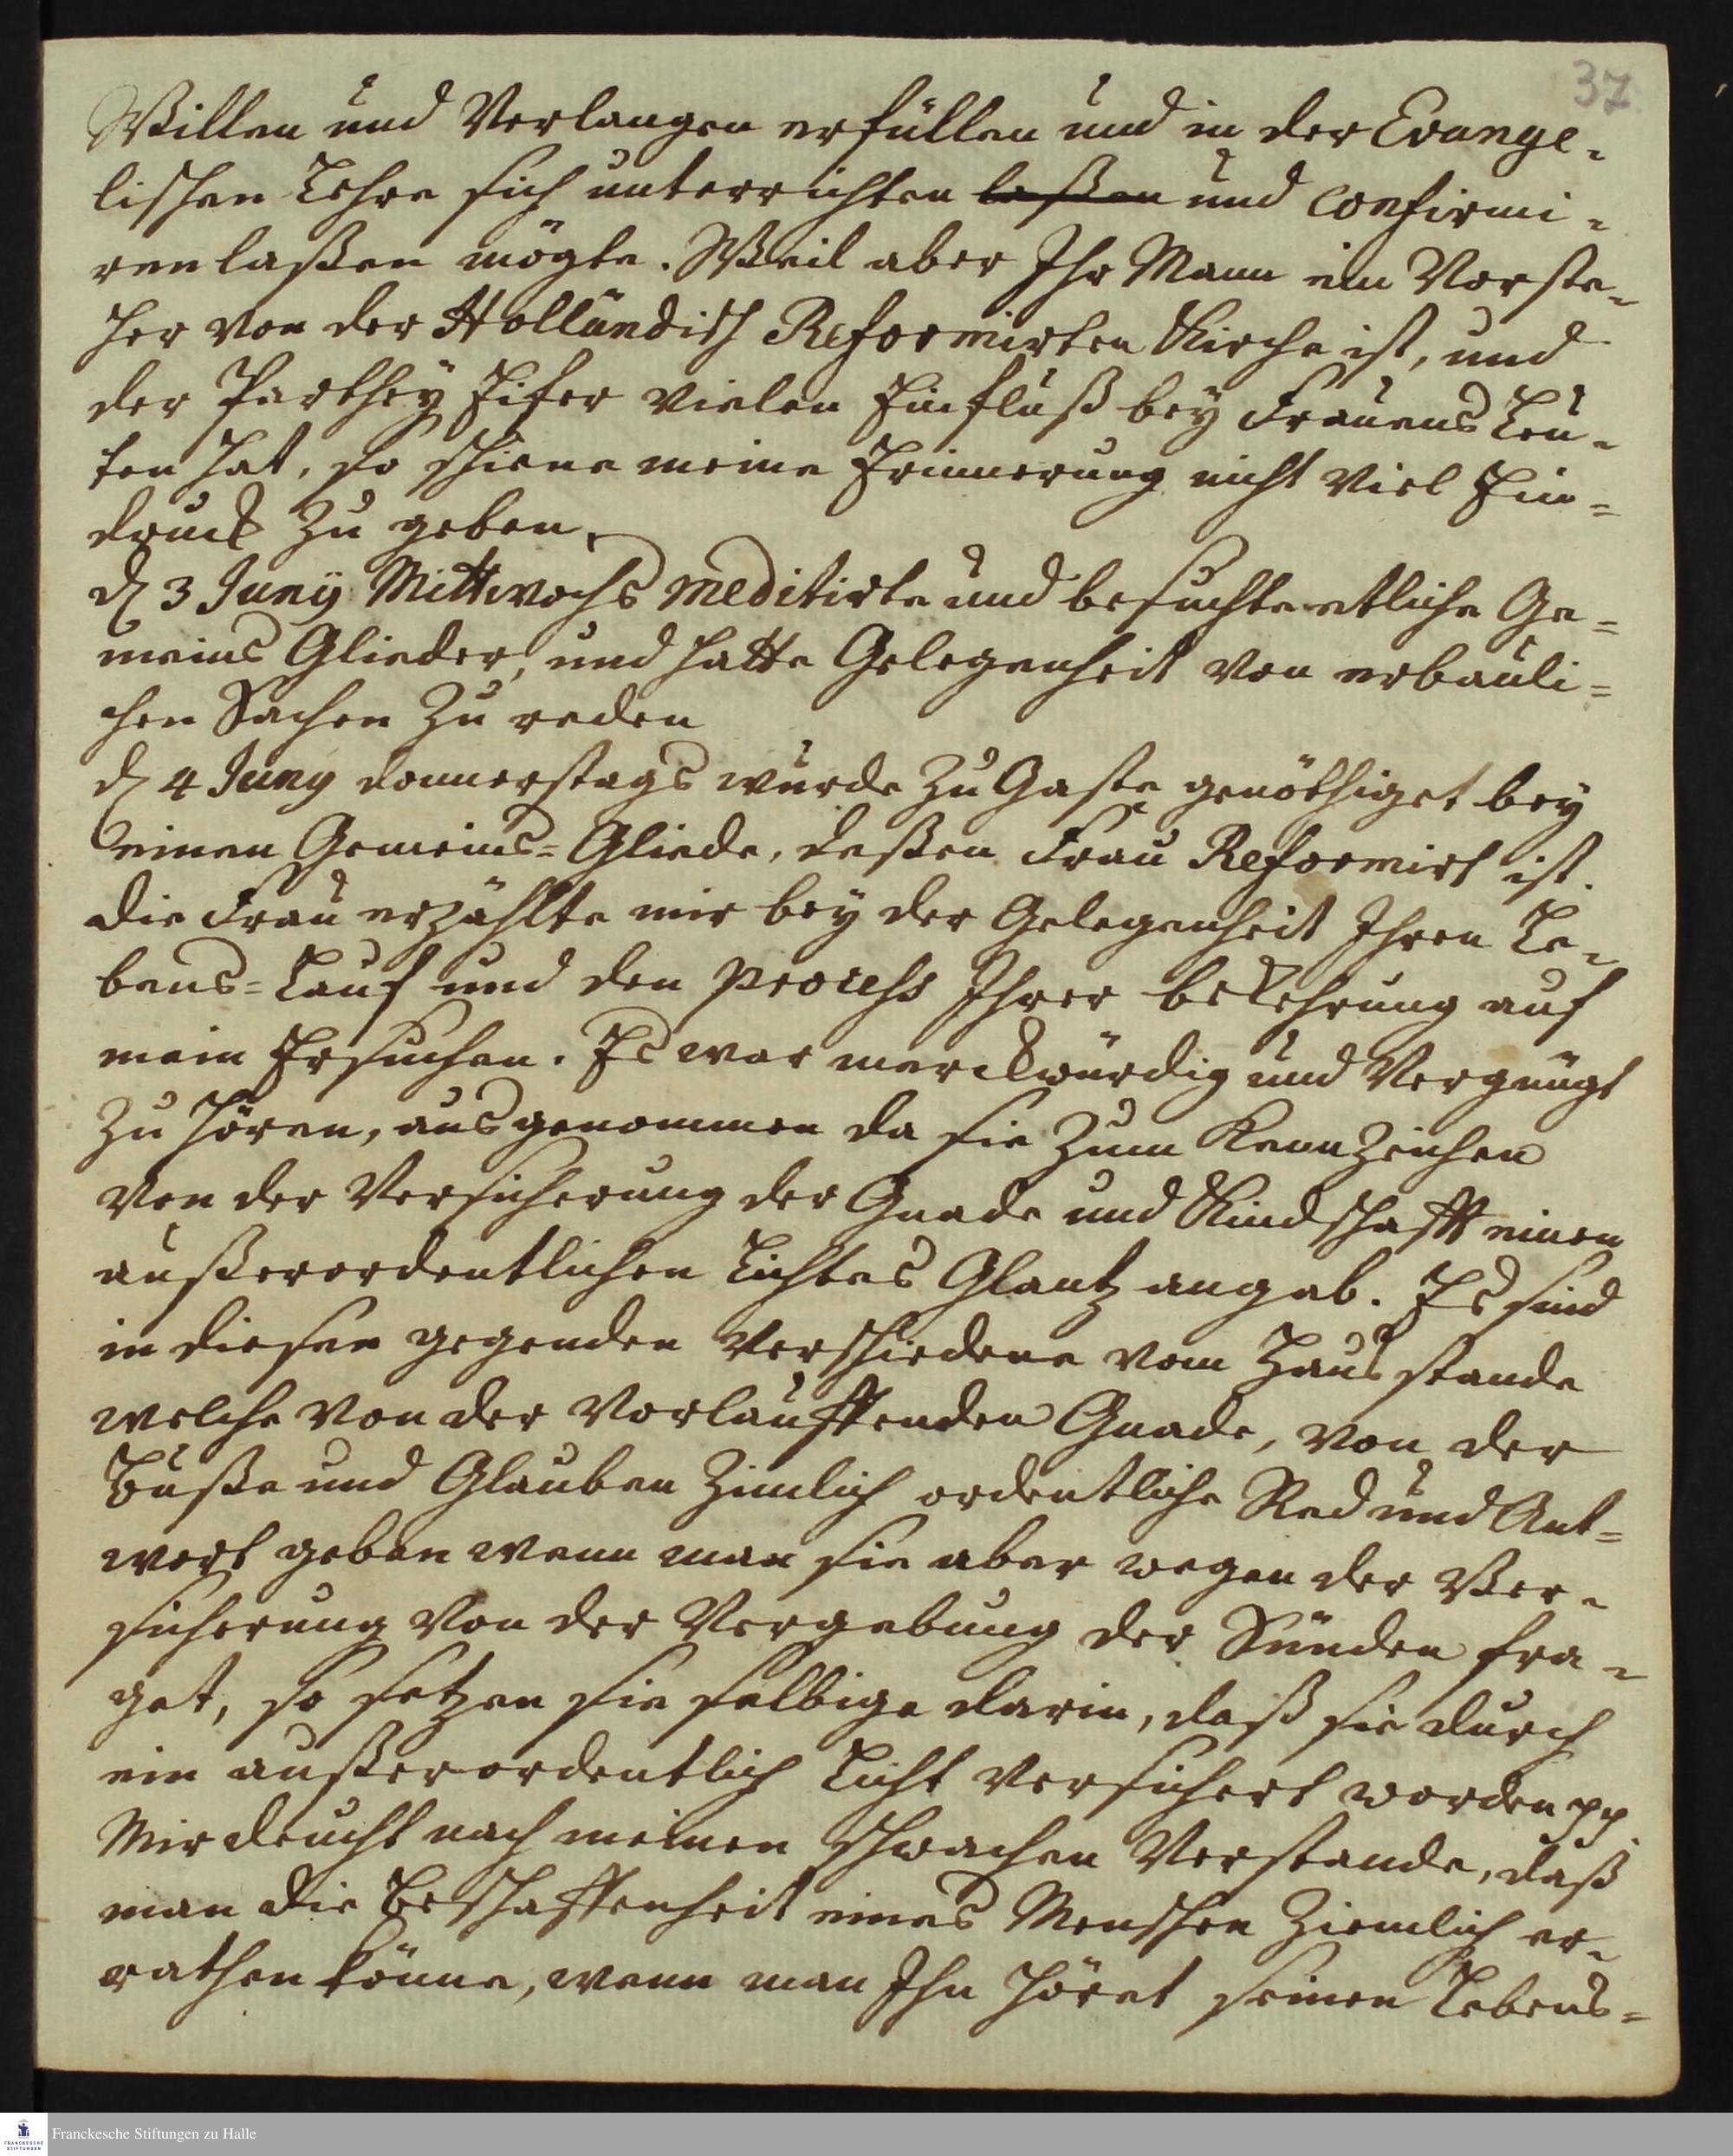 37
Willen und Verlangen erfüllen und in der Evange-
lischen Lehre sich unterrichten laßen und confirmi-
ren laßen mögte. Weil aber Ihr Mann ein Vorste-
her von der Holländisch Reformirten Kirche ist, und
der Parthey Eifer vielen Einfluß bey Frauens Leu-
ten hat, so schiene meine Erinnerung nicht viel Ein-
druck zu geben.
d 3 Juny Mittwochs meditirte und besuchte etliche Ge-
meins Glieder, und hatte Gelegenheit von erbauli-
chen Sachen zu reden
d 4 Juny donnerstags wurde zu Gaste genöthiget bey
einen Gemeins-Gliede, deßen Frau Reformirt ist.
die Frau erzählte mir bey der Gelegenheit Ihren Le-
bens-Lauf und den process Ihrer bekehrung auf
mein Ersuchen. Es war merckwürdig und Vergnügt
zu hören, ausgenommen da sie zum Kennzeichen
von der Versicherung der Gnade und Kindschafft einen
außerordentlichen Lichtes Glantz angab. Es sind
in diesen gegenden verschiedene vom Hausstande
welche von der vorlauffenden Gnade, von der
Buße und Glauben zimlich ordentliche Red und Ant-
wort geben wenn man sie aber wegen der Ver-
sicherung von der Vergebung der Sünden fra-
get, so setzen sie selbige darin, daß sie durch
ein außerordentlich Licht versichert worden pp.
Mir deucht nach meinen schwachen Verstande, daß
man die Beschaffenheit eines Menschen ziemlich er-
rathen könne, wenn man Ihn höret seinen Lebens-
Franckesche Stiftungen zu Halle